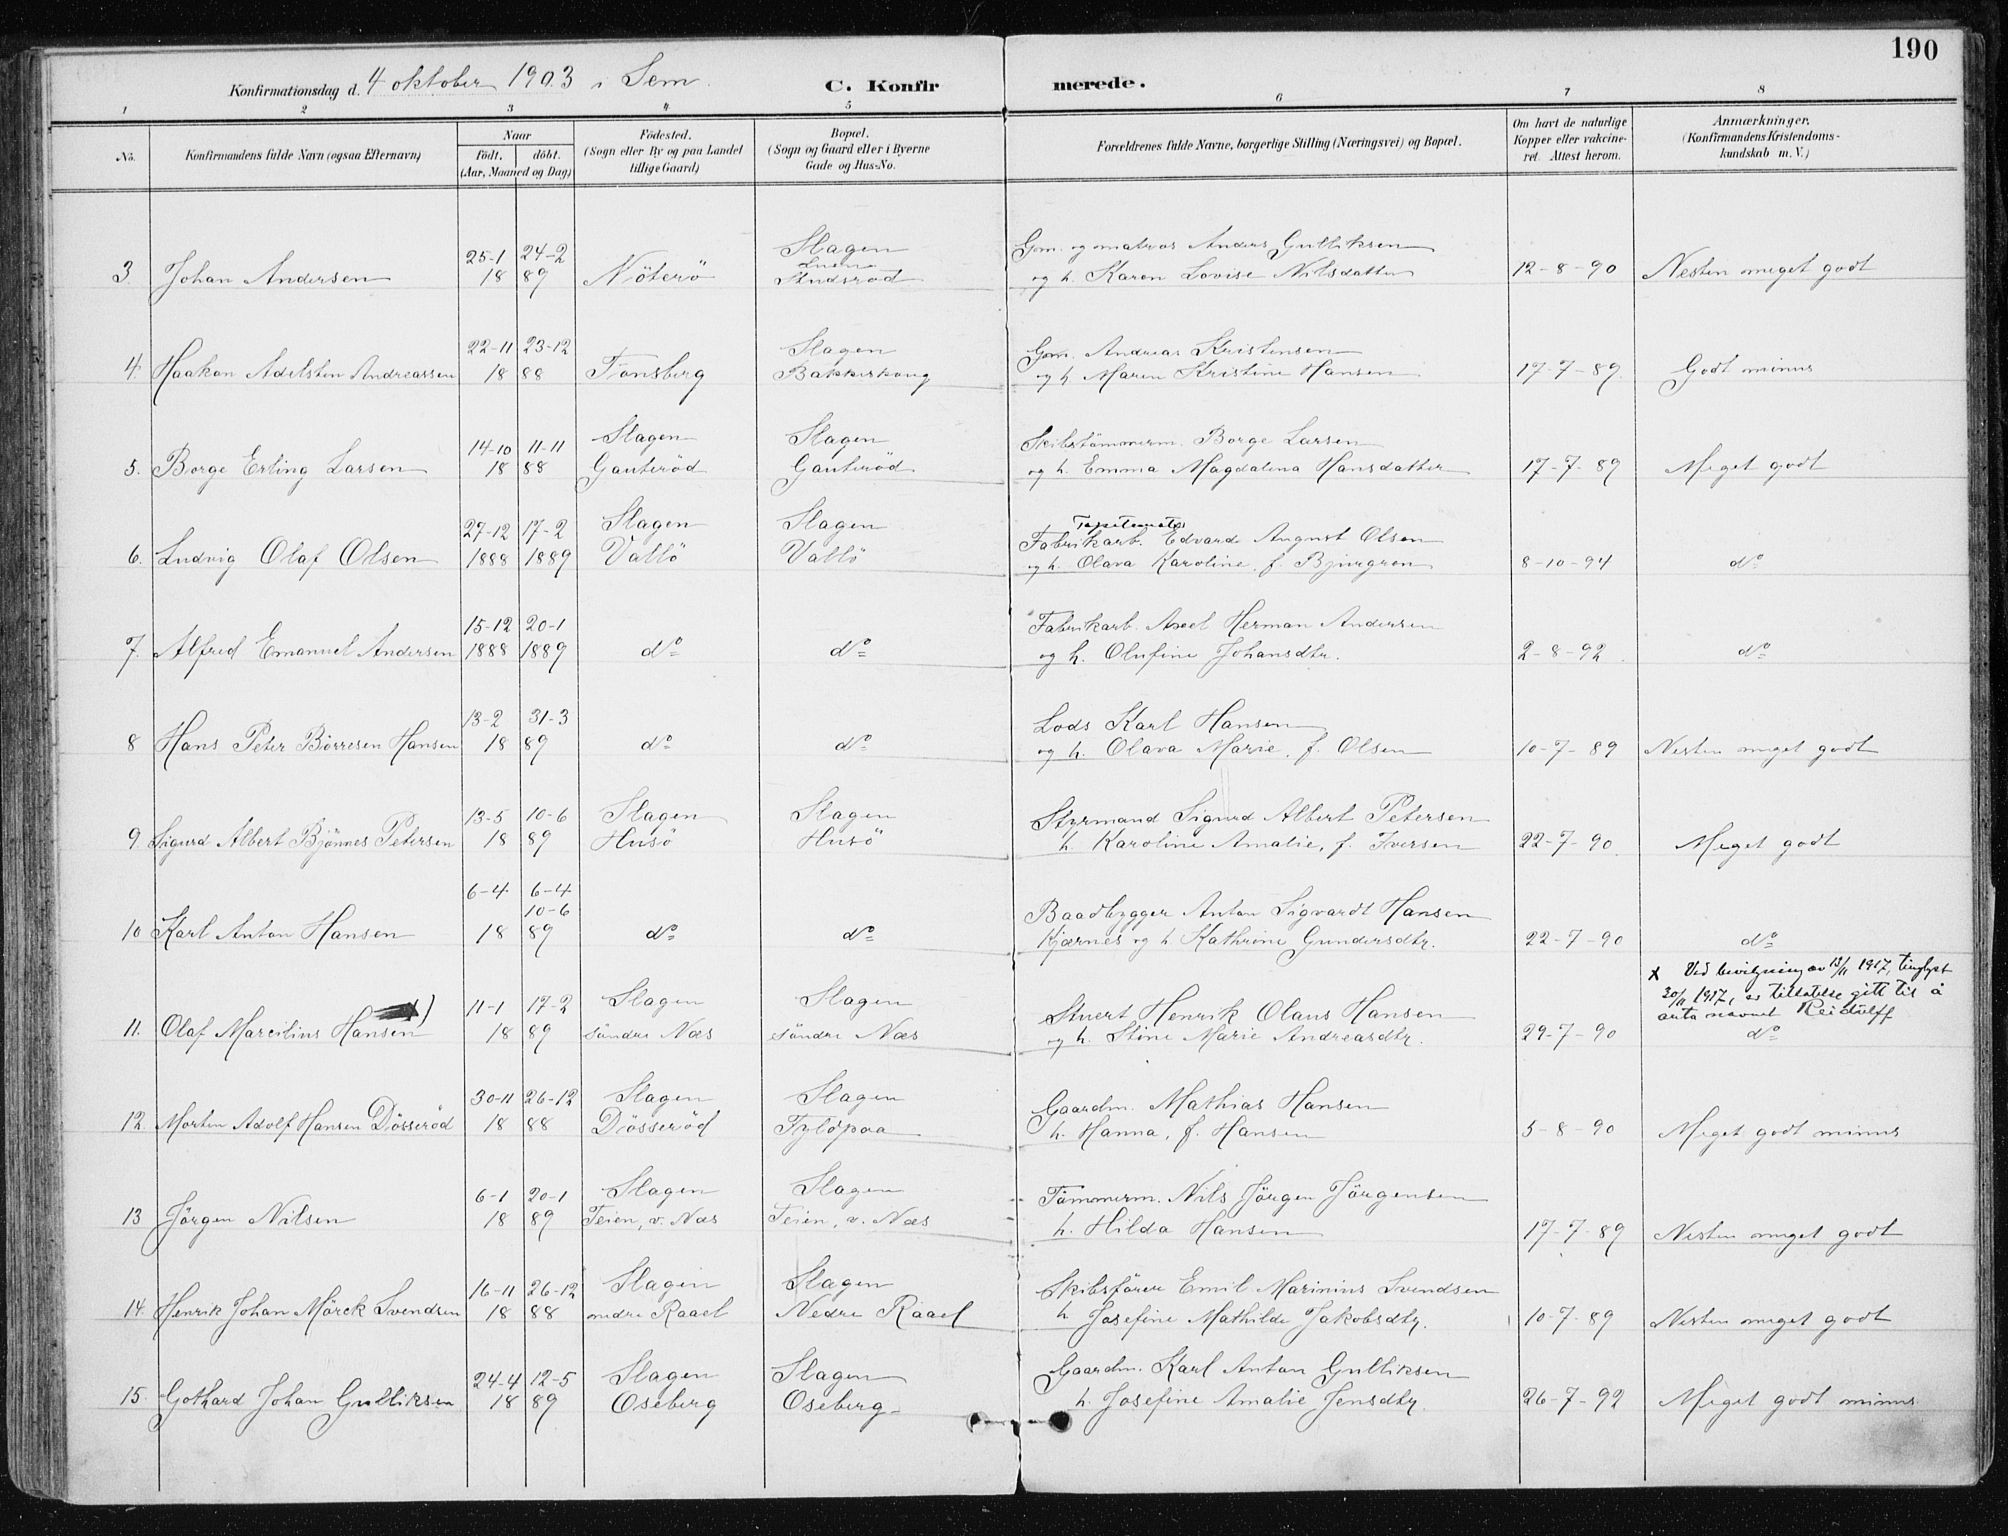 190
Konfirmationsdag d. 4 oktober 1903 i Sem. C. Konfirmerede.
1 2 3 4 5 6 7 8
No. Konfirmandens fulde Navn (ogsaa Efternavn) Naar födt. döbt. (Aar, Maaned og Dag) Födested. (Sogn eller By og paa Landet tillige Gaard) Bopæl. (Sogn og Gaard eller i Byerne Gade og Hus-No. Forældrenes fulde Navne, borgerlige Stilling (Næringsvei) og Bopæl. Om havt de naturlige Kopper eller vakcineret. Attest herom. Anmærkninger. (Konfirmandens Kristendomskundskab m. V.)
25-1 24-2 Slagen Gm. og matros Anders Gulliksen
3. Johan Andersen 18 89 Nöterö og h. Karen Lovise Nilsdatter 12-8-90 Nesten meget godt
22-11 23-12 Slagen Gm. Andreas Kristensen
4. Haakon Adelsten Andreassen 18 88 Tønsberg Bakkeskoug og h. Maren Kristine Hansen 17-7-89 Godt minus
14-10 11-11 Slagen Slagen Skibstömmerm. Borge Larsen
5. Borge Erling Larsen 18 88 Gauteröd Gauteröd og h. Emma Magdalena Hansdatter 17-7-89 Meget godt
27-12 17-2 Slagen Slagen Fabrikarb. Edvard August Olsen
6. Ludvig Olaf Olsen 1888 1889 Vallö Vallö og h. Olava Karoline, f. Bjurgren 8-10-94 do
15-12 20-1 Fabrikarb. Axel Herman Andersen
7. Alfred Emanuel Andersen 1888 1889 do do og h. Olufine Johansdtr. 2-8-92 do
13-2 31-3 Lods Karl Hansen
8 Hans Peter Börresen Hansen 18 89 do do og h. Olava Marie, f. Olsen 10-7-89 Nesten meget godt
13-5 10-6 Slagen Slagen Styrmand Sigurd Albert Petersen
9. Sigurd Albert Bjönnes Petersen 18 89 Husö Husö h. Karoline Amalie, f. Iversen 22-7-90 Meget godt
6-4 6-4
10-6 Baadbygger Anton Sigvardt Hansen
10 Karl Anton Hansen 18 89 do do Kjærnes og h. Kathrine Gundersdtr. 22-7-90 do
x Ved bevilgning av 13/11 1917, tinglyst
30/11 1917, er tillatelse gitt til å
anta navnet Reidulff
11-1 17-2 Slagen Slagen Stuert Henrik Olaus Hansen
11. Olaf Marcilius Hansen x) 18 89 söndre Næs söndre Næs og h. Stine Marie Andreasdtr. 29-7-90 do
30-11 26-12 Slagen Slagen Gaardm. Mathias Hansen
12. Morten Adolf Hansen Dösseröd 18 88 Dösseröd h. Hanna, f. Hansen 5-8-90 Meget godt minus
6-1 20-1 Slagen Slagen Tömmerm. Nils Jörgen Jörgensen
13 Jörgen Nilsen 18 89 Teien, v. Næs Teien, v. Næs h. Hilda Hansen 17-7-89 Nesten meget godt
16-11 26-12 Slagen Slagen Skibsförer Emil Marinius Svendsen
14. Henrik Johan Mörck Svendsen 18 88 nedre Raael Nedre Raael h. Josefine Mathilde Jakobsdtr. 10-7-89 Nesten meget godt
24-4 12-5 Slagen Slagen Gaardm. Karl Anton Gulliksen
15. Gothard Johan Gulliksen 18 89 Oseberg Oseberg h. Josefine Amalie Jensdtr. 26-7-92 Meget godt minus